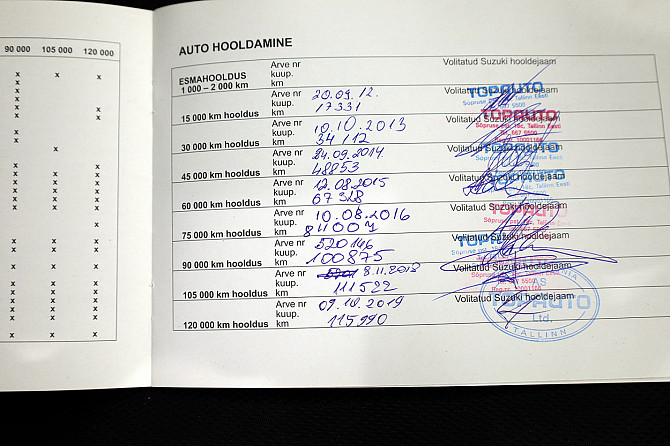 90 000 105 000 120 000
x x x
x
x
x
x x
x
x
x
x
x x
x x x
x x x
x x x
x x x
x
x x x
x x x
x x x
x x x
x x x
x x x
x x x
x x x
AUTO HOOLDAMINE
ESMAHOOLDUS
1 000 – 2 000 km
Arve nr
kuup.
km
Volitatud Suzuki hooldejaam
15 000 km hooldus
Arve nr
kuup. 20.09.12.
km 17331
Volitatud Suzuki hooldejaam
TOPAUTO
30 000 km hooldus
Arve nr
kuup. 10.10.2013
km 34112
Volitatud Suzuki hooldejaam
TOPAUTO
45 000 km hooldus
Arve nr
kuup. 24.09.2014
km 48853
Volitatud Suzuki hooldejaam
60 000 km hooldus
Arve nr
kuup. 12.08.2015
km 67328
Volitatud Suzuki hooldejaam
75 000 km hooldus
Arve nr
kuup. 10.08.2016
km 84007
Volitatud Suzuki hooldejaam
TOPAUTO
90 000 km hooldus
Arve nr
kuup. 520146
km 100875
Volitatud Suzuki hooldejaam
105 000 km hooldus
Arve nr 8.11.2018
kuup.
km 111522
Volitatud Suzuki hooldejaam
120 000 km hooldus
Arve nr
kuup. 09.10.2019
km 115990
Volitatud Suzuki hooldejaam
AS
TOPAUTO
Ltd.
TALLINN